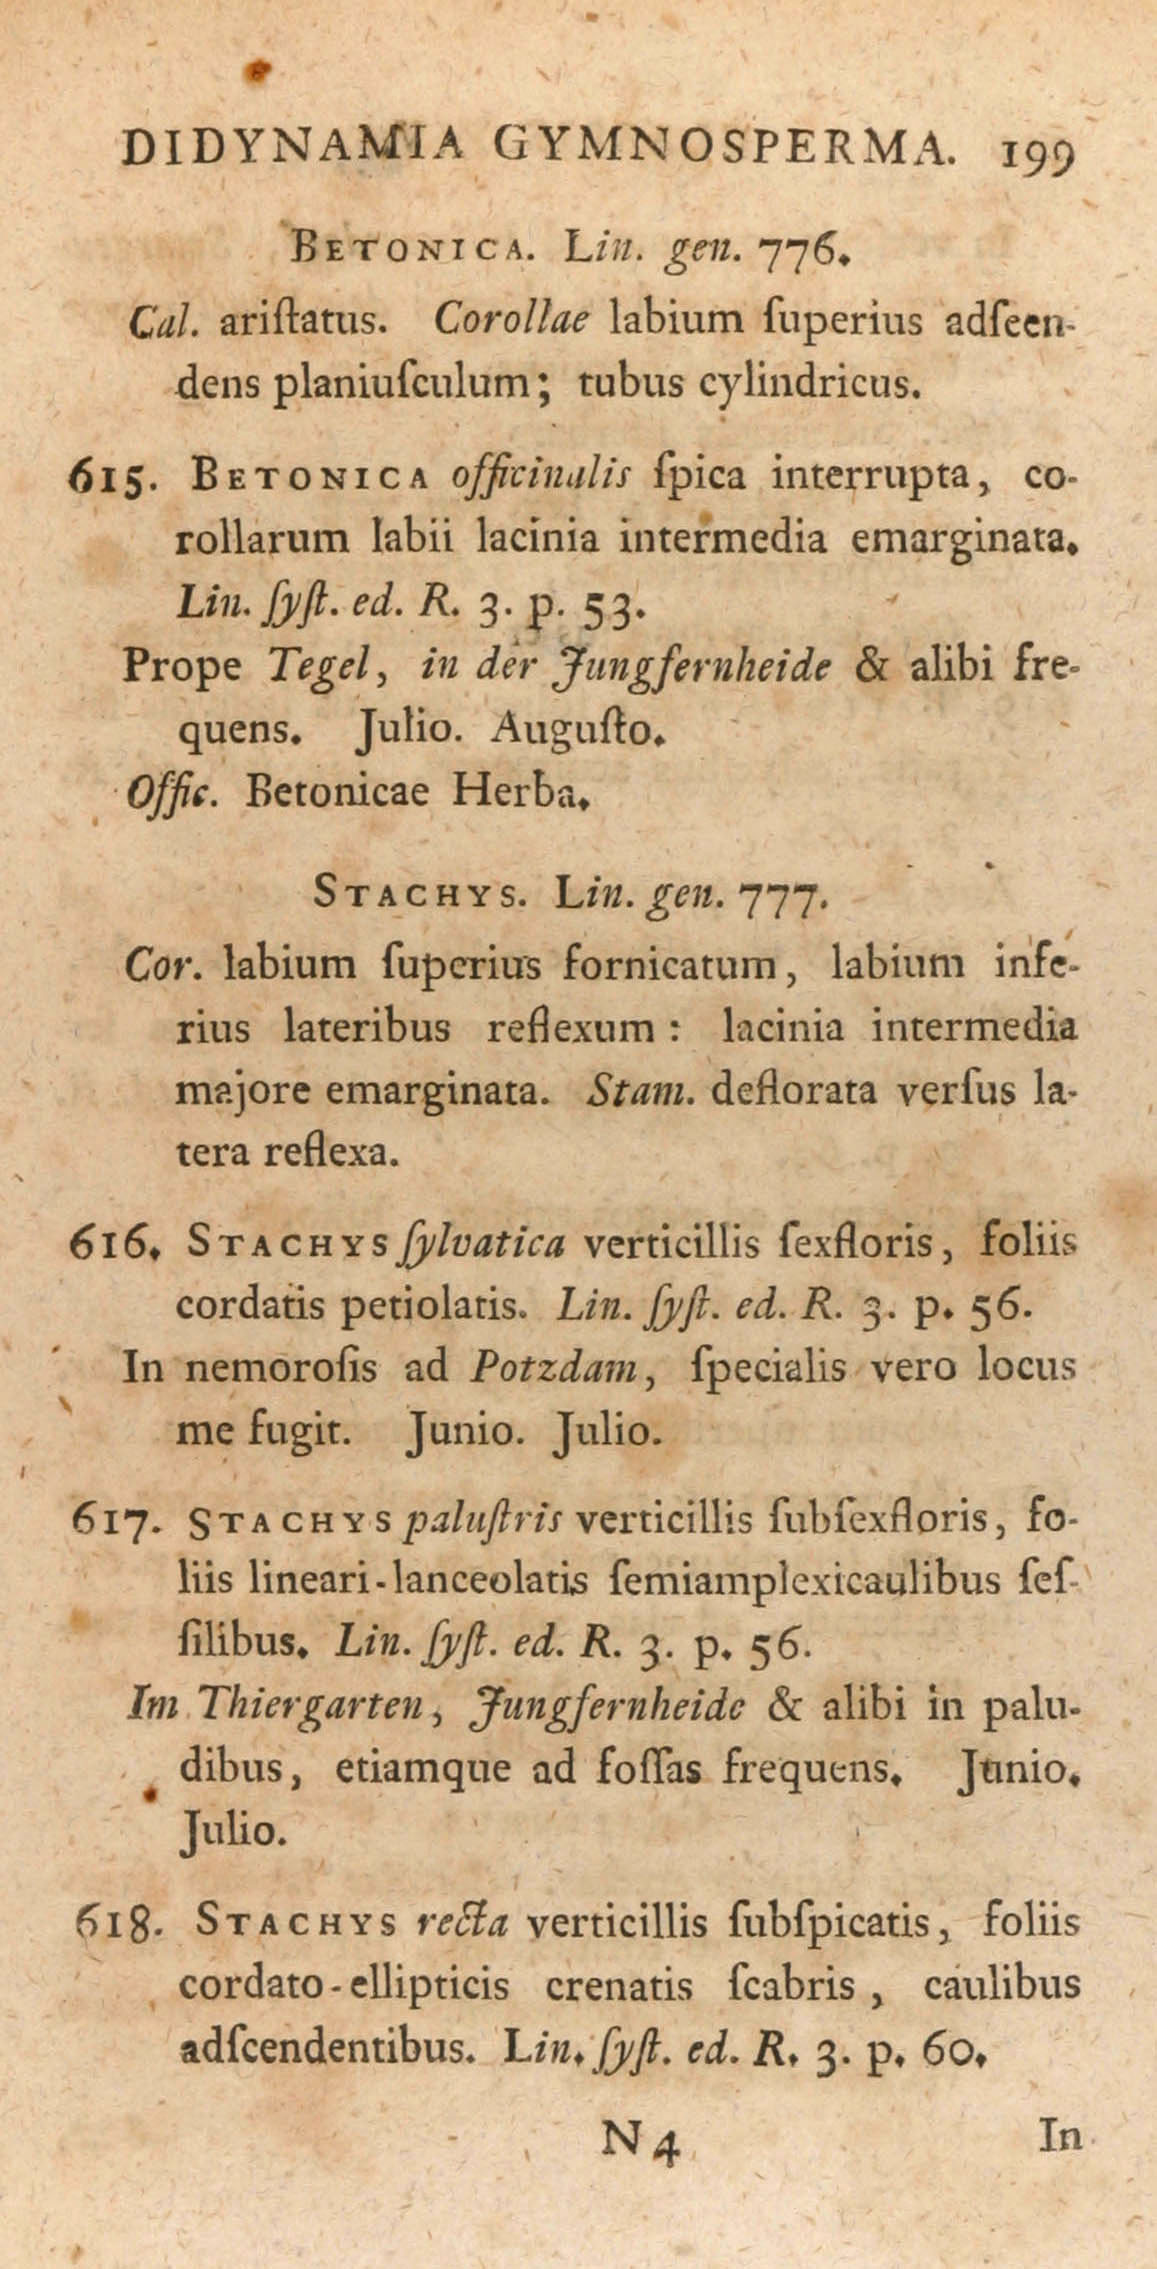 DIDYNAMIA GYMNOSPERMA. 199
BETONICA. Lin. gen. 776.
Cal. ariſtatus. Corollae labium ſuperius adſeen-
dens planiuſculum; tubus cylindricus.
615. BETONICA officinalis ſpica interrupta, co-
rollarum labii lacinia intermedia emarginata.
Lin. ſyſt. ed. R. 3. p. 53.
Prope Tegel, in der Jungfernheide & alibi fre-
quens. Julio. Auguſto.
Offic. Betonicae Herba.
STACHYS. Lin. gen. 777.
Cor. labium ſuperius fornicatum, labium infe-
rius lateribus reflexum: lacinia intermedia
majore emarginata. Stam. deflorata verſus la-
tera reflexa.
616. STACHYS ſylvatica verticillis ſexfloris, foliis
cordatis petiolatis. Lin. ſyſt. ed. R. 3. p. 56.
In nemoroſis ad Potzdam, ſpecialis vero locus
me fugit. Junio. Julio.
617. STACHYS paluſtris verticillis ſubſexfloris, fo-
liis lineari-lanceolatis ſemiamplexicaulibus ſeſ-
ſilibus. Lin. ſyſt. ed. R. 3. p. 56.
Im Thiergarten, Jungfernheide & alibi in palu-
dibus, etiamque ad foſſas frequens. Junio.
Julio.
618. STACHYS recta verticillis ſubſpicatis, foliis
cordato-ellipticis crenatis ſcabris, caulibus
adſcendentibus. Lin. ſyſt. ed. R. 3. p. 60.
N 4 In